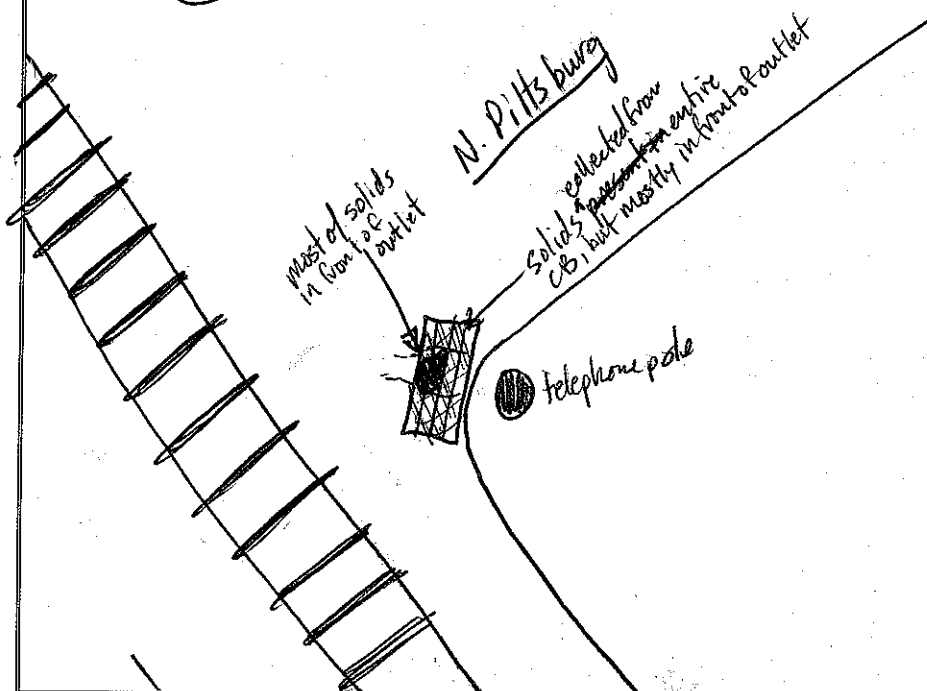 N. Pittsburg
most of solids
in front of
outlet
collected from
solids ^ present in entire
CB, but mostly in front of outlet
telephone pole